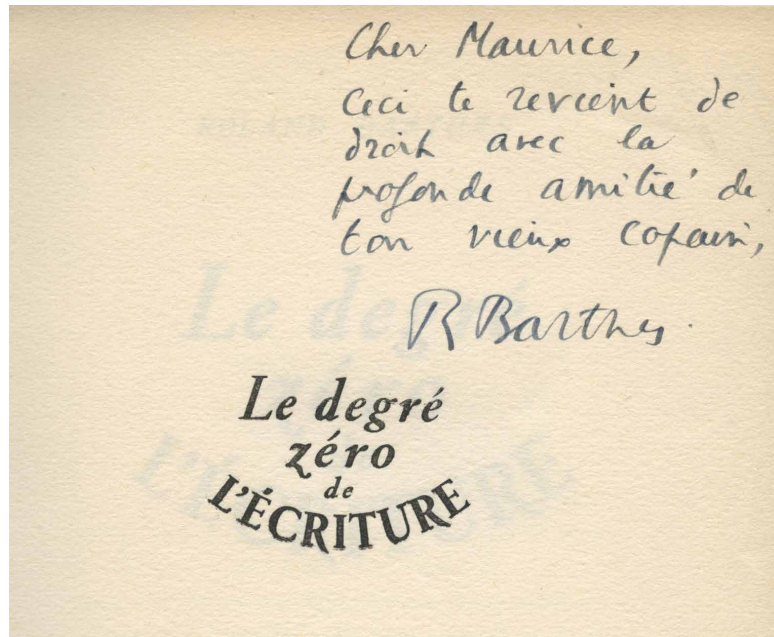 Cher Maurice,
Ceci te revient de
droit avec la
profonde amitié de
ton vieux copain,
R Barthes.
Le degré
zéro
de
L'ÉCRITURE